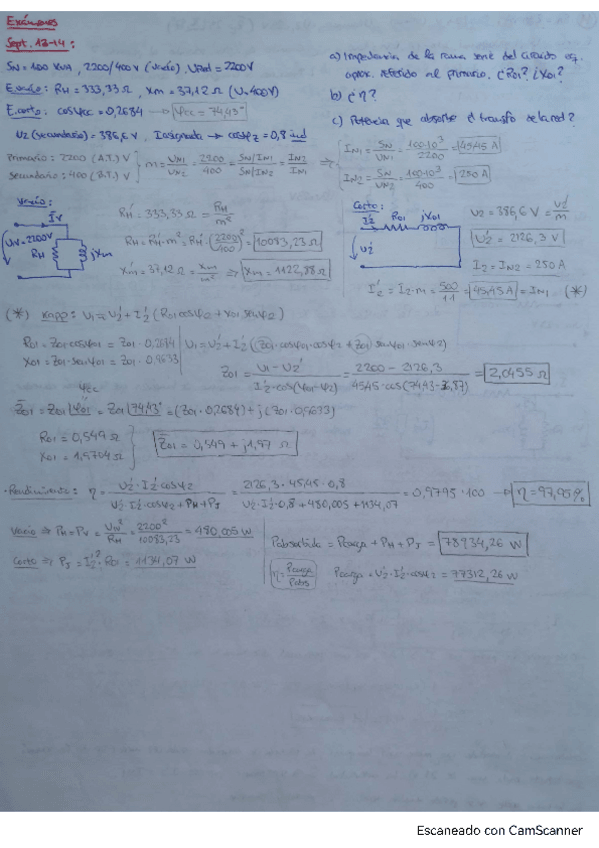 Exámenes
Sept. 13-14:
SN = 100 KVA, 2200/400 V (vacío), URed = 2200V
E. vacío: RH = 333,33 Ω, Xm = 37,12 Ω (U=400V)
E. corto: cosφcc = 0,2684 → φcc = 74,43°
U2 (secundario) = 386,6 V, Iasignada → cosφ2 = 0,8 ind
a) Impedancia de la rama serie del circuito eq.
aprox. referido al primario. ¿R01? ¿X01?
b) ¿η?
c) Potencia que absorbe el transfo de la red?
Primario: 2200 (A.T.) V
Secundario: 400 (B.T.) V
m = UN1/UN2 = 2200/400 = SN/IN1 / SN/IN2 = IN2/IN1 ⇒
IN1 = SN/UN1 = 100·10³/2200 = 45,45 A
IN2 = SN/UN2 = 100·10³/400 = 250 A
Vacío:
Iv
UN=2200V
RH
jXm
RH' = 333,33 Ω = RH/m²
RH = RH'·m² = RH'·(2200/400)² = 10083,23 Ω
Xm' = 37,12 Ω = Xm/m² ⇒ Xm = 1122,88 Ω
Corto:
I2' R01 jX01
U2'
U2 = 386,6 V = U2'/m
U2' = 2126,3 V
I2 = IN2 = 250 A
I2' = I2/m = 500/11 = 45,45 A = IN1 (*)
(*) Kapp: U1 = U2' + I2' (R01 cosφ2 + X01 senφ2)
R01 = Z01 cosφ01 = Z01 · 0,2684
X01 = Z01 · senφ01 = Z01 · 0,9633
U1 = U2' + I2' (Z01 · cosφ01 · cosφ2 + Z01 senφ01 · senφ2)
Z01 = U1 - U2' / I2' · cos(φ01-φ2) = 2200 - 2126,3 / 45,45 · cos(74,43-36,87) = 2,0455 Ω
φcc
Z01 = Z01 |φ01 = Z01 |74,43° = (Z01 · 0,2684) + j(Z01 · 0,9633)
R01 = 0,549 Ω
X01 = 1,9704 Ω
Z01 = 0,549 + j1,97 Ω
· Rendimiento: η = U2' · I2' cosφ2 / U2' · I2' cosφ2 + PH + PJ = 2126,3 · 45,45 · 0,8 / U2' · I2' · 0,8 + 480,005 + 1134,07 = 0,9795 · 100 → η = 97,95 %
Vacío ⇒ PH = PV = UN²/RH = 2200²/10083,23 = 480,005 W
Corto ⇒ PJ = I2'² · R01 = 1134,07 W
Pabsorbida = Pcarga + PH + PJ = 78934,26 W
η = Pcarga/Pabs
Pcarga = U2' · I2' · cosφ2 = 77312,26 W
Escaneado con CamScanner